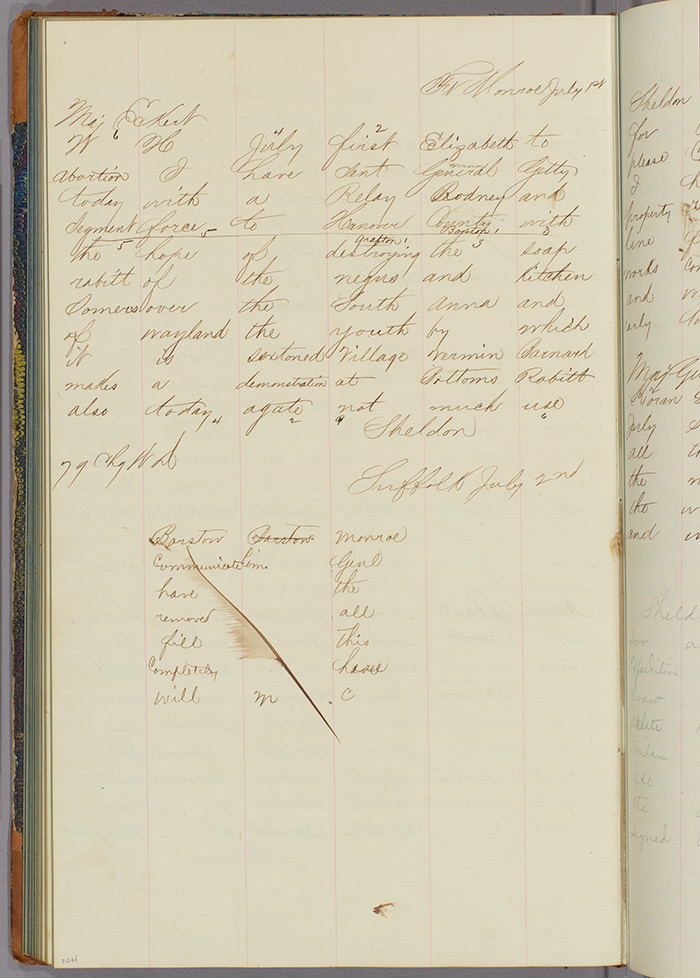 Ft Monroe July 1st
Maj Eckert
6 2
W H July first Elizabeth to
abortion I have sent General Getty
today with a Relay Rodney and
Segment force 5 to Hanover County with
the 5 hope of destroying the 3 soap
grafton!
rabitt of the negus and Kitchen
Somers over the South Anna and
of wayland the youth by which
it is sextoned Village vermin Barnard
makes a demonstration at Bottoms Rabitt
also today 4 agate 2 not much use
Sheldon 6
79 Chg W D
Suffolk July 2nd
Barstow Barstow Monroe
Communicate Genl
have the
removed all
fill this
Completely have
will m C
204
Sheldon
for
please
I
property
line
works
and
July
all
the
the
and
Sheld
Expedition
the
signed